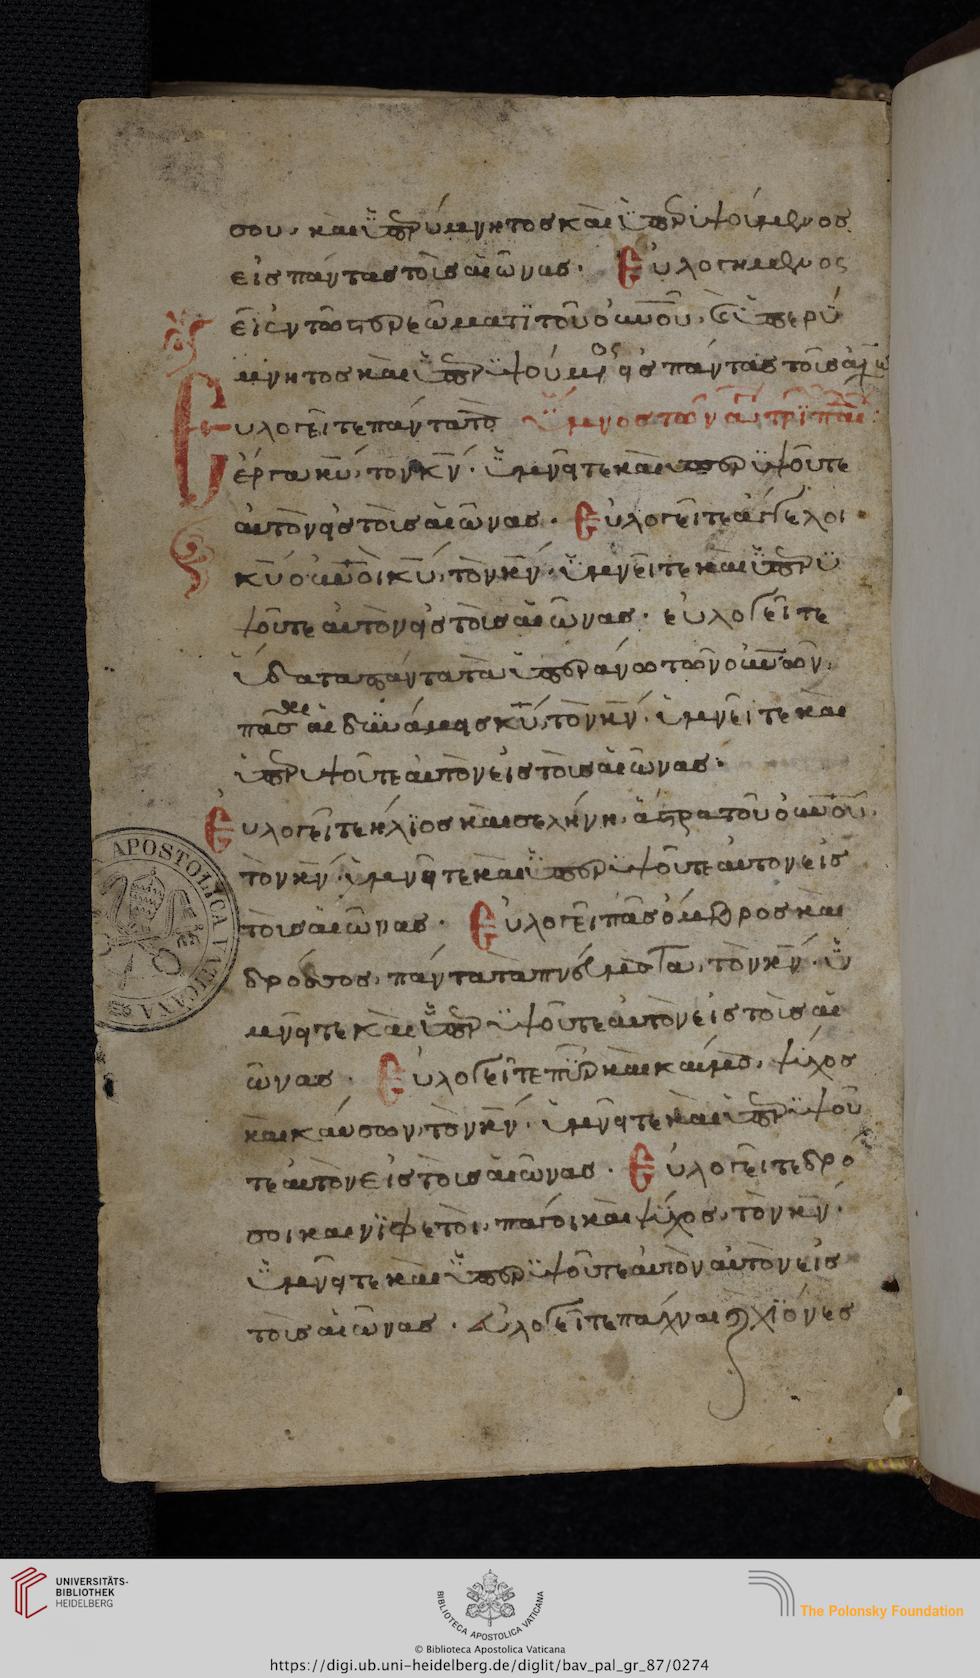 σου· καὶ ὑπερύμνητος καὶ ὑπερυψούμενος
εἰς πάντας τοὺς αἰῶνας· Εὐλογημένος
εἶ ἐν τῶ στερεώματι τοῦ οὐνοῦ, καὶ ὑπερύ
μνητος καὶ ὑπερυψούμενος εἰς πάντας τοὺς αἰῶ
Ὕμνος τῶν
Εὐλογεῖτε πάντα τὰ
ἔργα κυ, τὸν κν· ὑμνεῖτε καὶ ὑπερυψοῦτε
αὐτὸν εἰς τοὺς αἰῶνας· Εὐλογεῖτε ἄγγελοι
κυ οὐνοὶ κυ, τὸν κν· ὑμνεῖτε καὶ ὑπερυ
ψοῦτε αὐτὸν εἰς τοὺς αἰῶνας· εὐλογεῖτε
ὕδατα πάντα τὰ ὑπεράνω τῶν οὐνῶν,
πᾶσαι αἱ δυνάμεις κυ, τὸν κν· ὑμνεῖτε καὶ
ὑπερυψοῦτε αὐτὸν εἰς τοὺς αἰῶνας·
Εὐλογεῖτε ἥλϊος καὶ σελήνη, ἄστρα τοῦ οὐνοῦ,
τὸν κν· ὑμνεῖτε καὶ ὑπερυψοῦτε αὐτὸν εἰς
τοὺς αἰῶνας· Εὐλογεῖ πᾶς ὄμβρος καὶ
δρόσος, πάντα τὰ πνεύματα, τὸν κν· ὑ
μνεῖτε καὶ ὑπερυψοῦτε αὐτὸν εἰς τοὺς αἰ
ῶνας· Εὐλογεῖτε πῦρ καὶ καῦμα, ψύχος
καὶ καύσων, τὸν κν· ὑμνεῖτε καὶ ὑπερυψοῦ
τε αὐτὸν εἰς τοὺς αἰῶνας· Εὐλογεῖτε δρό
σοι καὶ νϊφετοὶ, πάγοι καὶ ψύχος, τὸν κν·
ὑμνεῖτε καὶ ὑπερυψοῦτε αὐτὸν αὐτὸν εἰς
τοὺς αἰῶνας· Εὐλογεῖτε πάχναι καὶ χϊόνες
APOSTOLICA VATICANA
UNIVERSITÄTS-
BIBLIOTHEK
HEIDELBERG
BIBLIOTECA APOSTOLICA VATICANA
The Polonsky Foundation
© Biblioteca Apostolica Vaticana
https://digi.ub.uni-heidelberg.de/diglit/bav_pal_gr_87/0274